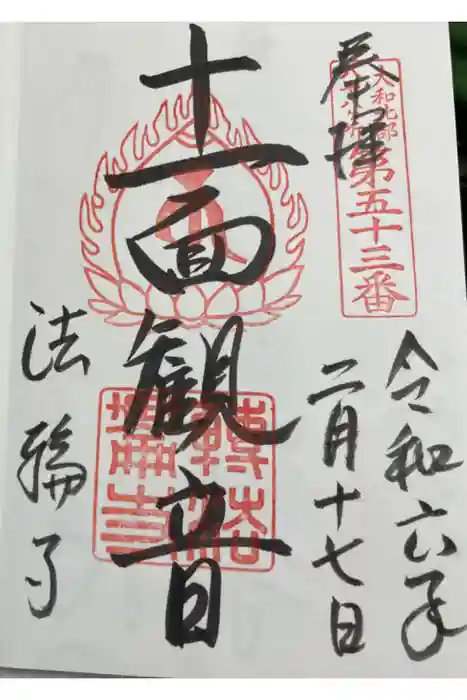 奉拝
大和北部八十八ヶ所
第五十三番
令和六年
二月十七日
十一面観音
法輪寺